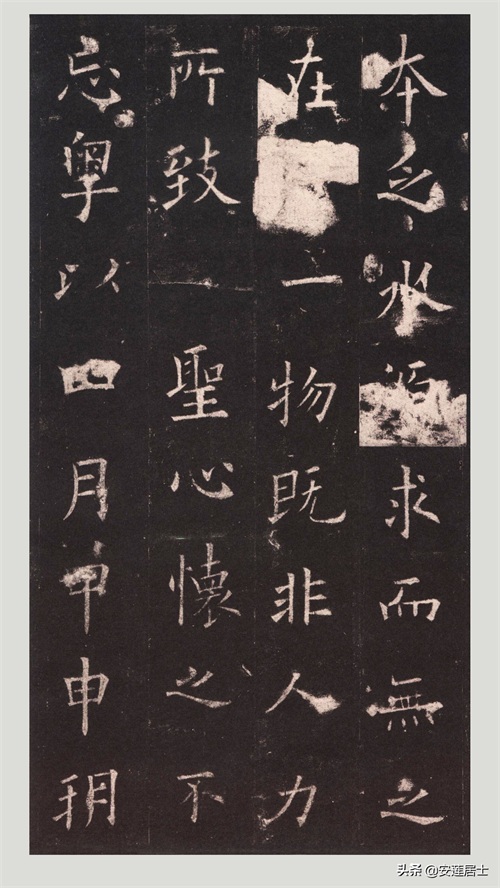 本乏水求而無之
在一物既非人力
所致聖心懷之不
忘粵以四月甲申朔
头条 @安莲居士